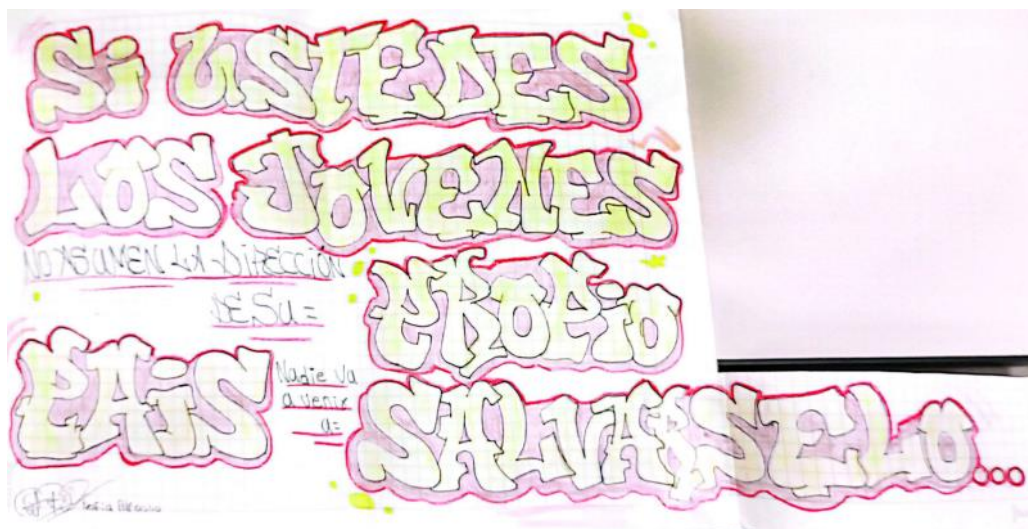 Si USTEDES
LOS JOVENES
NO ASUMEN LA DIRECCIÓN
DE SU=
PROPiO
PAiS
Nadie va
a venir
a=
SALVARSELO...